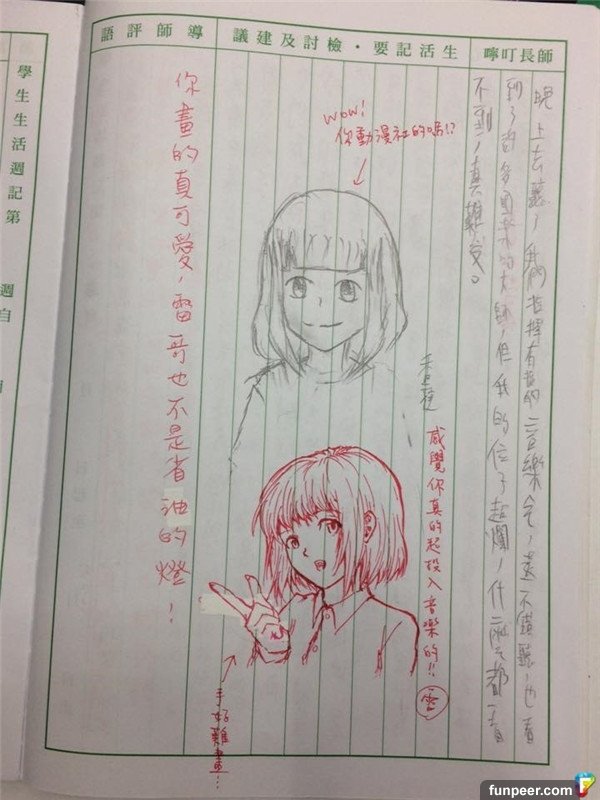 師長叮嚀
生活記要・檢討及建議
導師評語
晚上去聽了我們指揮有指的音樂會，還不錯聽，也看
到了許多國樂的大師，但我的位子超爛，什麼都看
不到，真難受。
wow!
你動漫社的嗎!?
感覺你真的超投入音樂的!!
雷
手好難畫…
你畫的真可愛，雷哥也不是省油的燈！
學生生活週記第
週自
funpeer.com